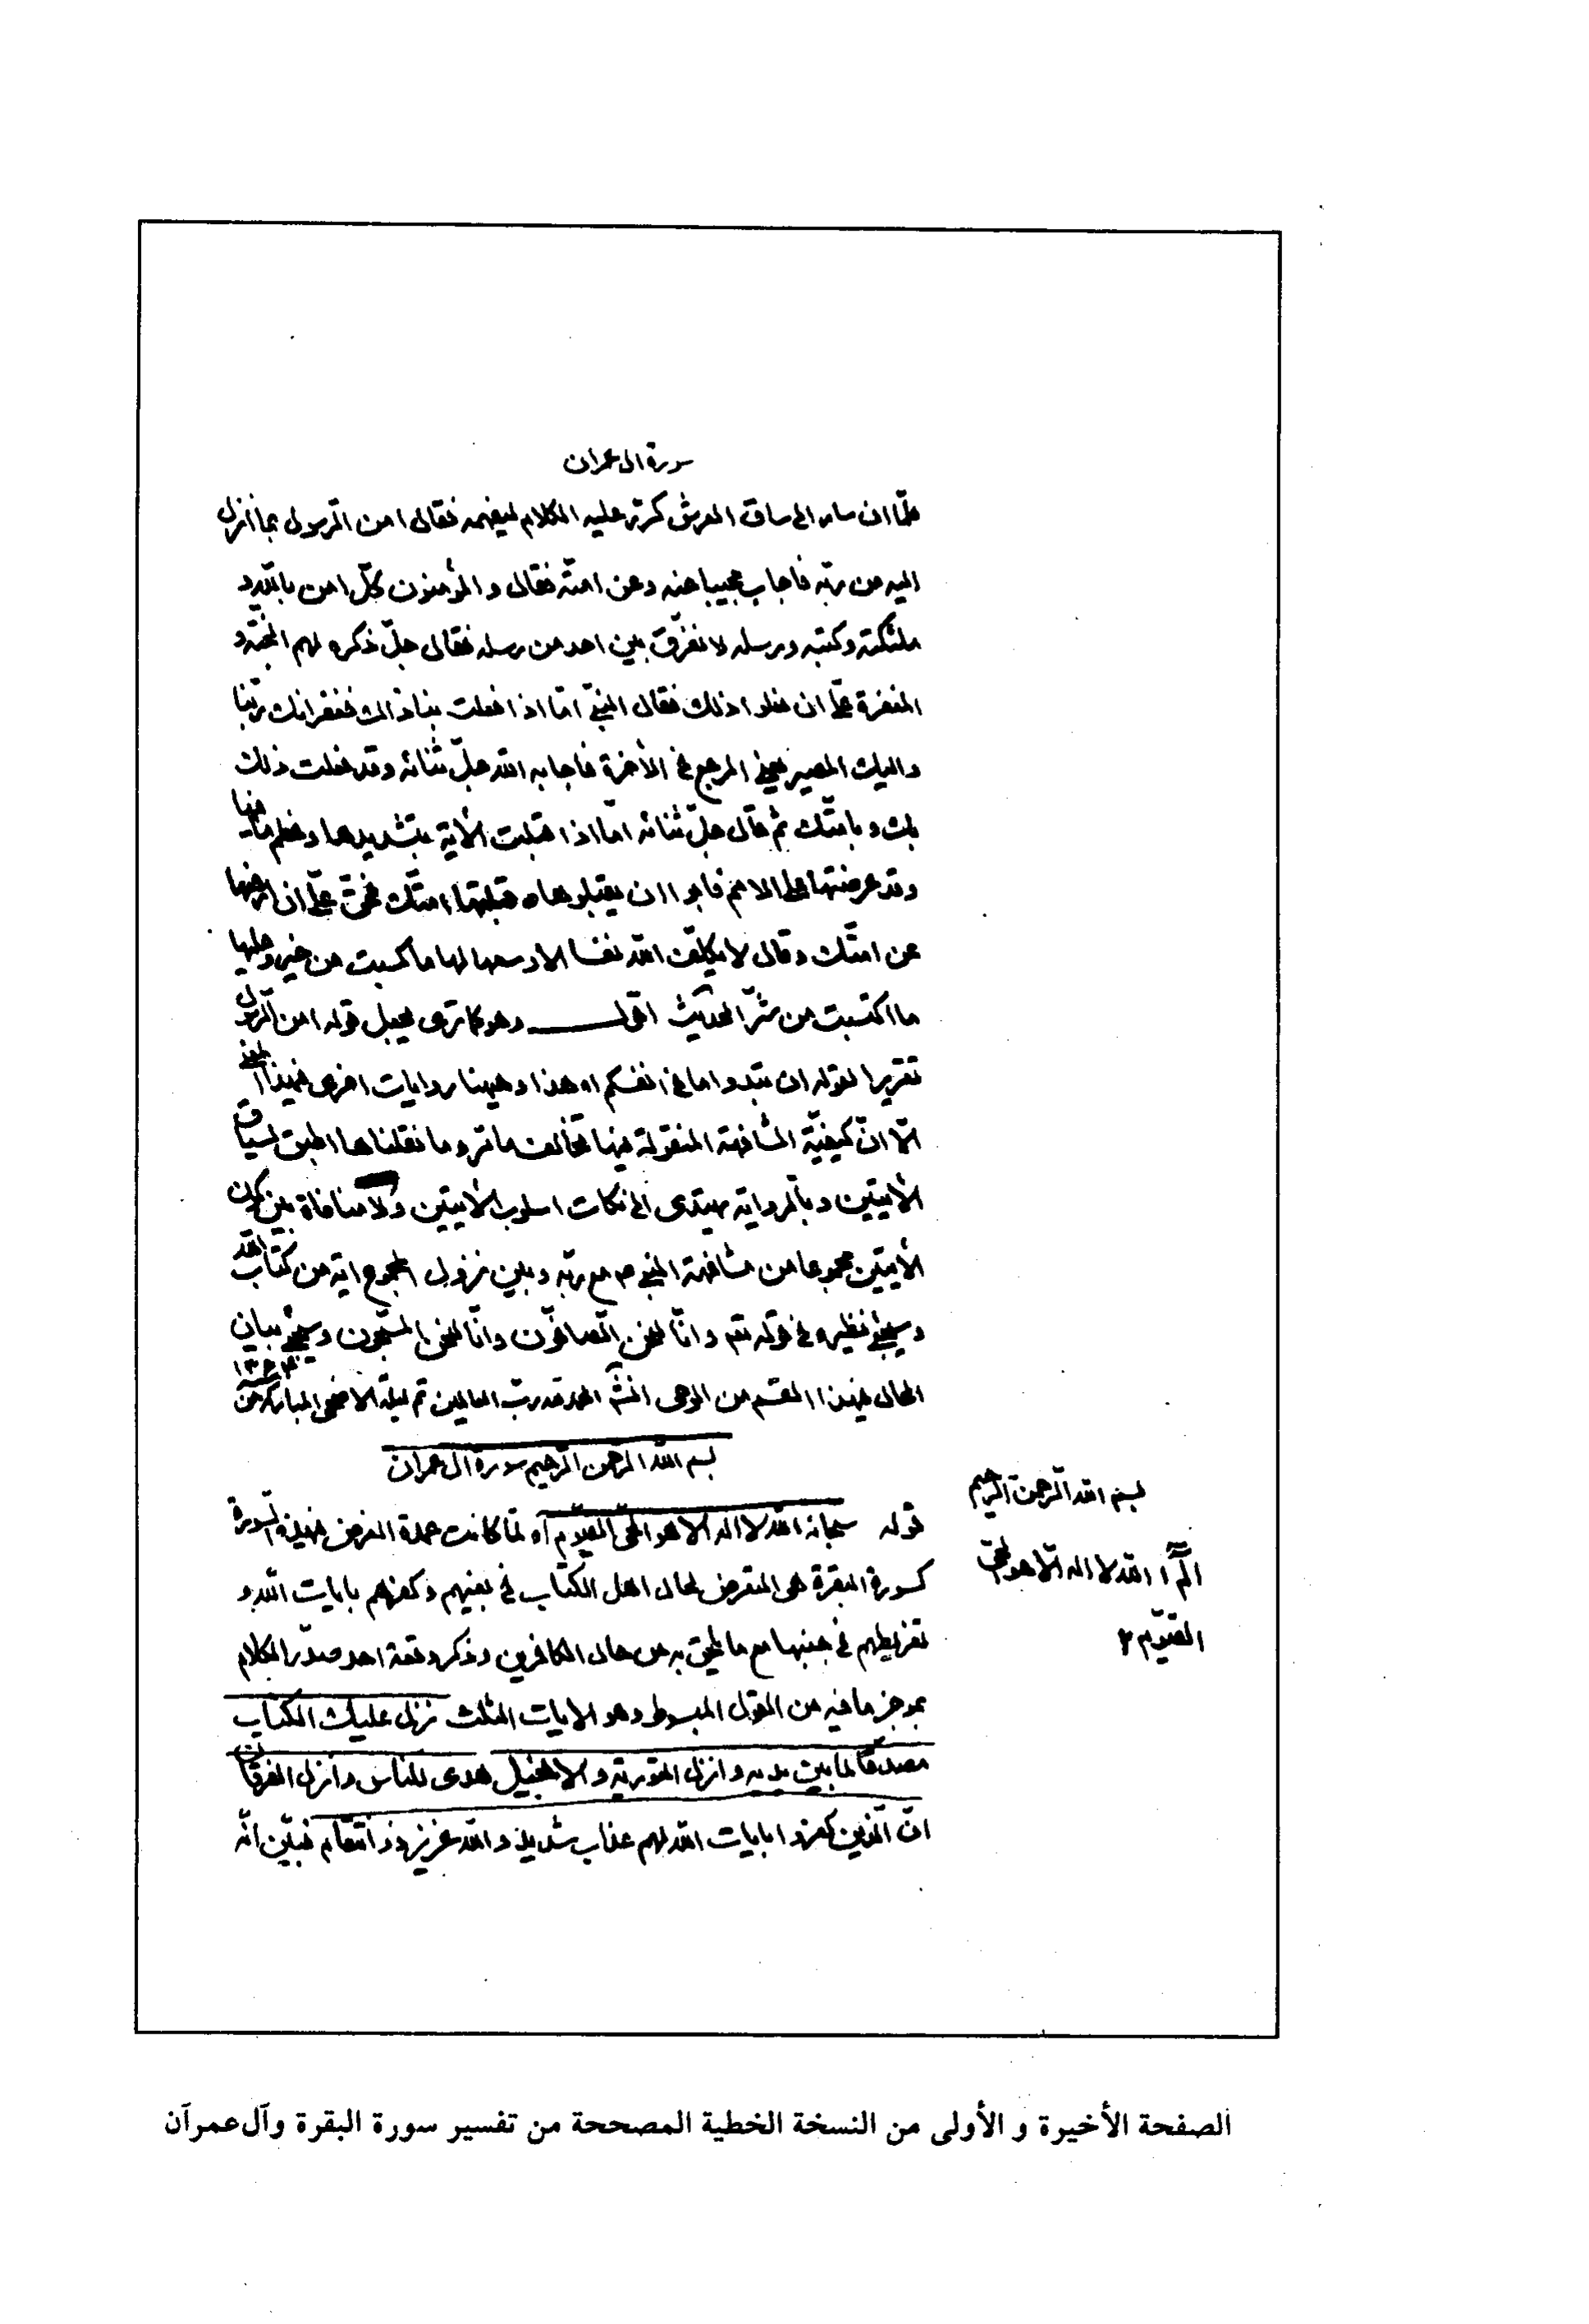 سورة ال عمران
فلمّا ان صار الى ساق العرش كرّر عليه الكلام ليفهمه فقال امن الرّسول بما انزل
اليه من ربّه فاجاب مجيبا عنه وعن امّته فقال والمؤمنون كلّ امن باللّه و
ملئكته وكتبه ورسله لا نفرّق بين احد من رسله فقال جلّ ذكره لهم الجنّة و
المغفرة علىّ ان فعلوا ذلك فقال النبىّ امّا اذا فعلت بنا ذلك فغفرانك ربّنا
واليك المصير يعنى المرجع فى الأخرة فاجابه اللّه جلّ ثنائه وقد فعلت ذلك
بك وبامّتك ثم قال جلّ ثنائه امّا اذا قبلت الأية بتشديدها وعظم ما فيها
وقد عرضتها على الامم فابوا ان يقبلوها وقبلتها امّتك فحقّ علىّ ان ارفعها
عن امّتك وقال لا يكلّف اللّه نفسا الا وسعها لها ما كسبت من خير وعليها
ما اكتسبت من شرّ الحديث اقول وهو كما ترى يجعل قوله امن الرّسول
تقريرا لقوله ان تبدوا ما فى انفسكم اه هذا وهيهنا روايات اخرى فى هذا المعنى
الّا انّ كيفيّة المشافهة المنقولة فيها تخالف ما مر وما نقلناها اطبق لسياق
الأيتين وبالرواية يهتدى الى نكات اسلوب الأيتين ولا منافاة بين كون
الأيتين مجموعا من مشافهة النبى ص مع ربّه وبين نزول المجموع اية من كتاب اللّه
وسيجئ نظيره فى قوله تعم وانّا لنحن الصّافّون وانّا لنحن المسبّحون وسيجئ بيان
الحال فى هذا القسم من الوحى انشّه الحمد للّه ربّ العالمين تم ليلة الاضحى المباركة من ١٣٦٤
بسم اللّه الرّحمن الرّحيم سورة ال عمران
قوله سبحانه اللّه لا اله الا هو الحىّ القيّوم اه لمّا كانت عمدة الغرض فى هذه السّورة
كسورة البقرة هى التعرض لحال اهل الكتاب فى بغيهم وكفرهم بايات اللّه و
تفريطهم فى جنبها مع ما يلحق به من حال الكافرين وذكر وقعة احد صدّر الكلام
بموجز ما فيه من القول المبسوط وهو الايات الثلث نزل عليك الكتاب
مصدّقا لما بين يديه وانزل التورية والانجيل هدى للناس وانزل الفرقان
انّ الّذين كفروا بايات اللّه لهم عذاب شديد واللّه عزيز ذو انتقام فبيّن انّه
بسم اللّه الرّحمن الرّحيم
الٓمٓ ١ اللّه لا اله الّا هو الحىّ
القيّوم ٢
الصفحة الأخيرة و الأولى من النسخة الخطية المصححة من تفسير سورة البقرة وآل عمرآن